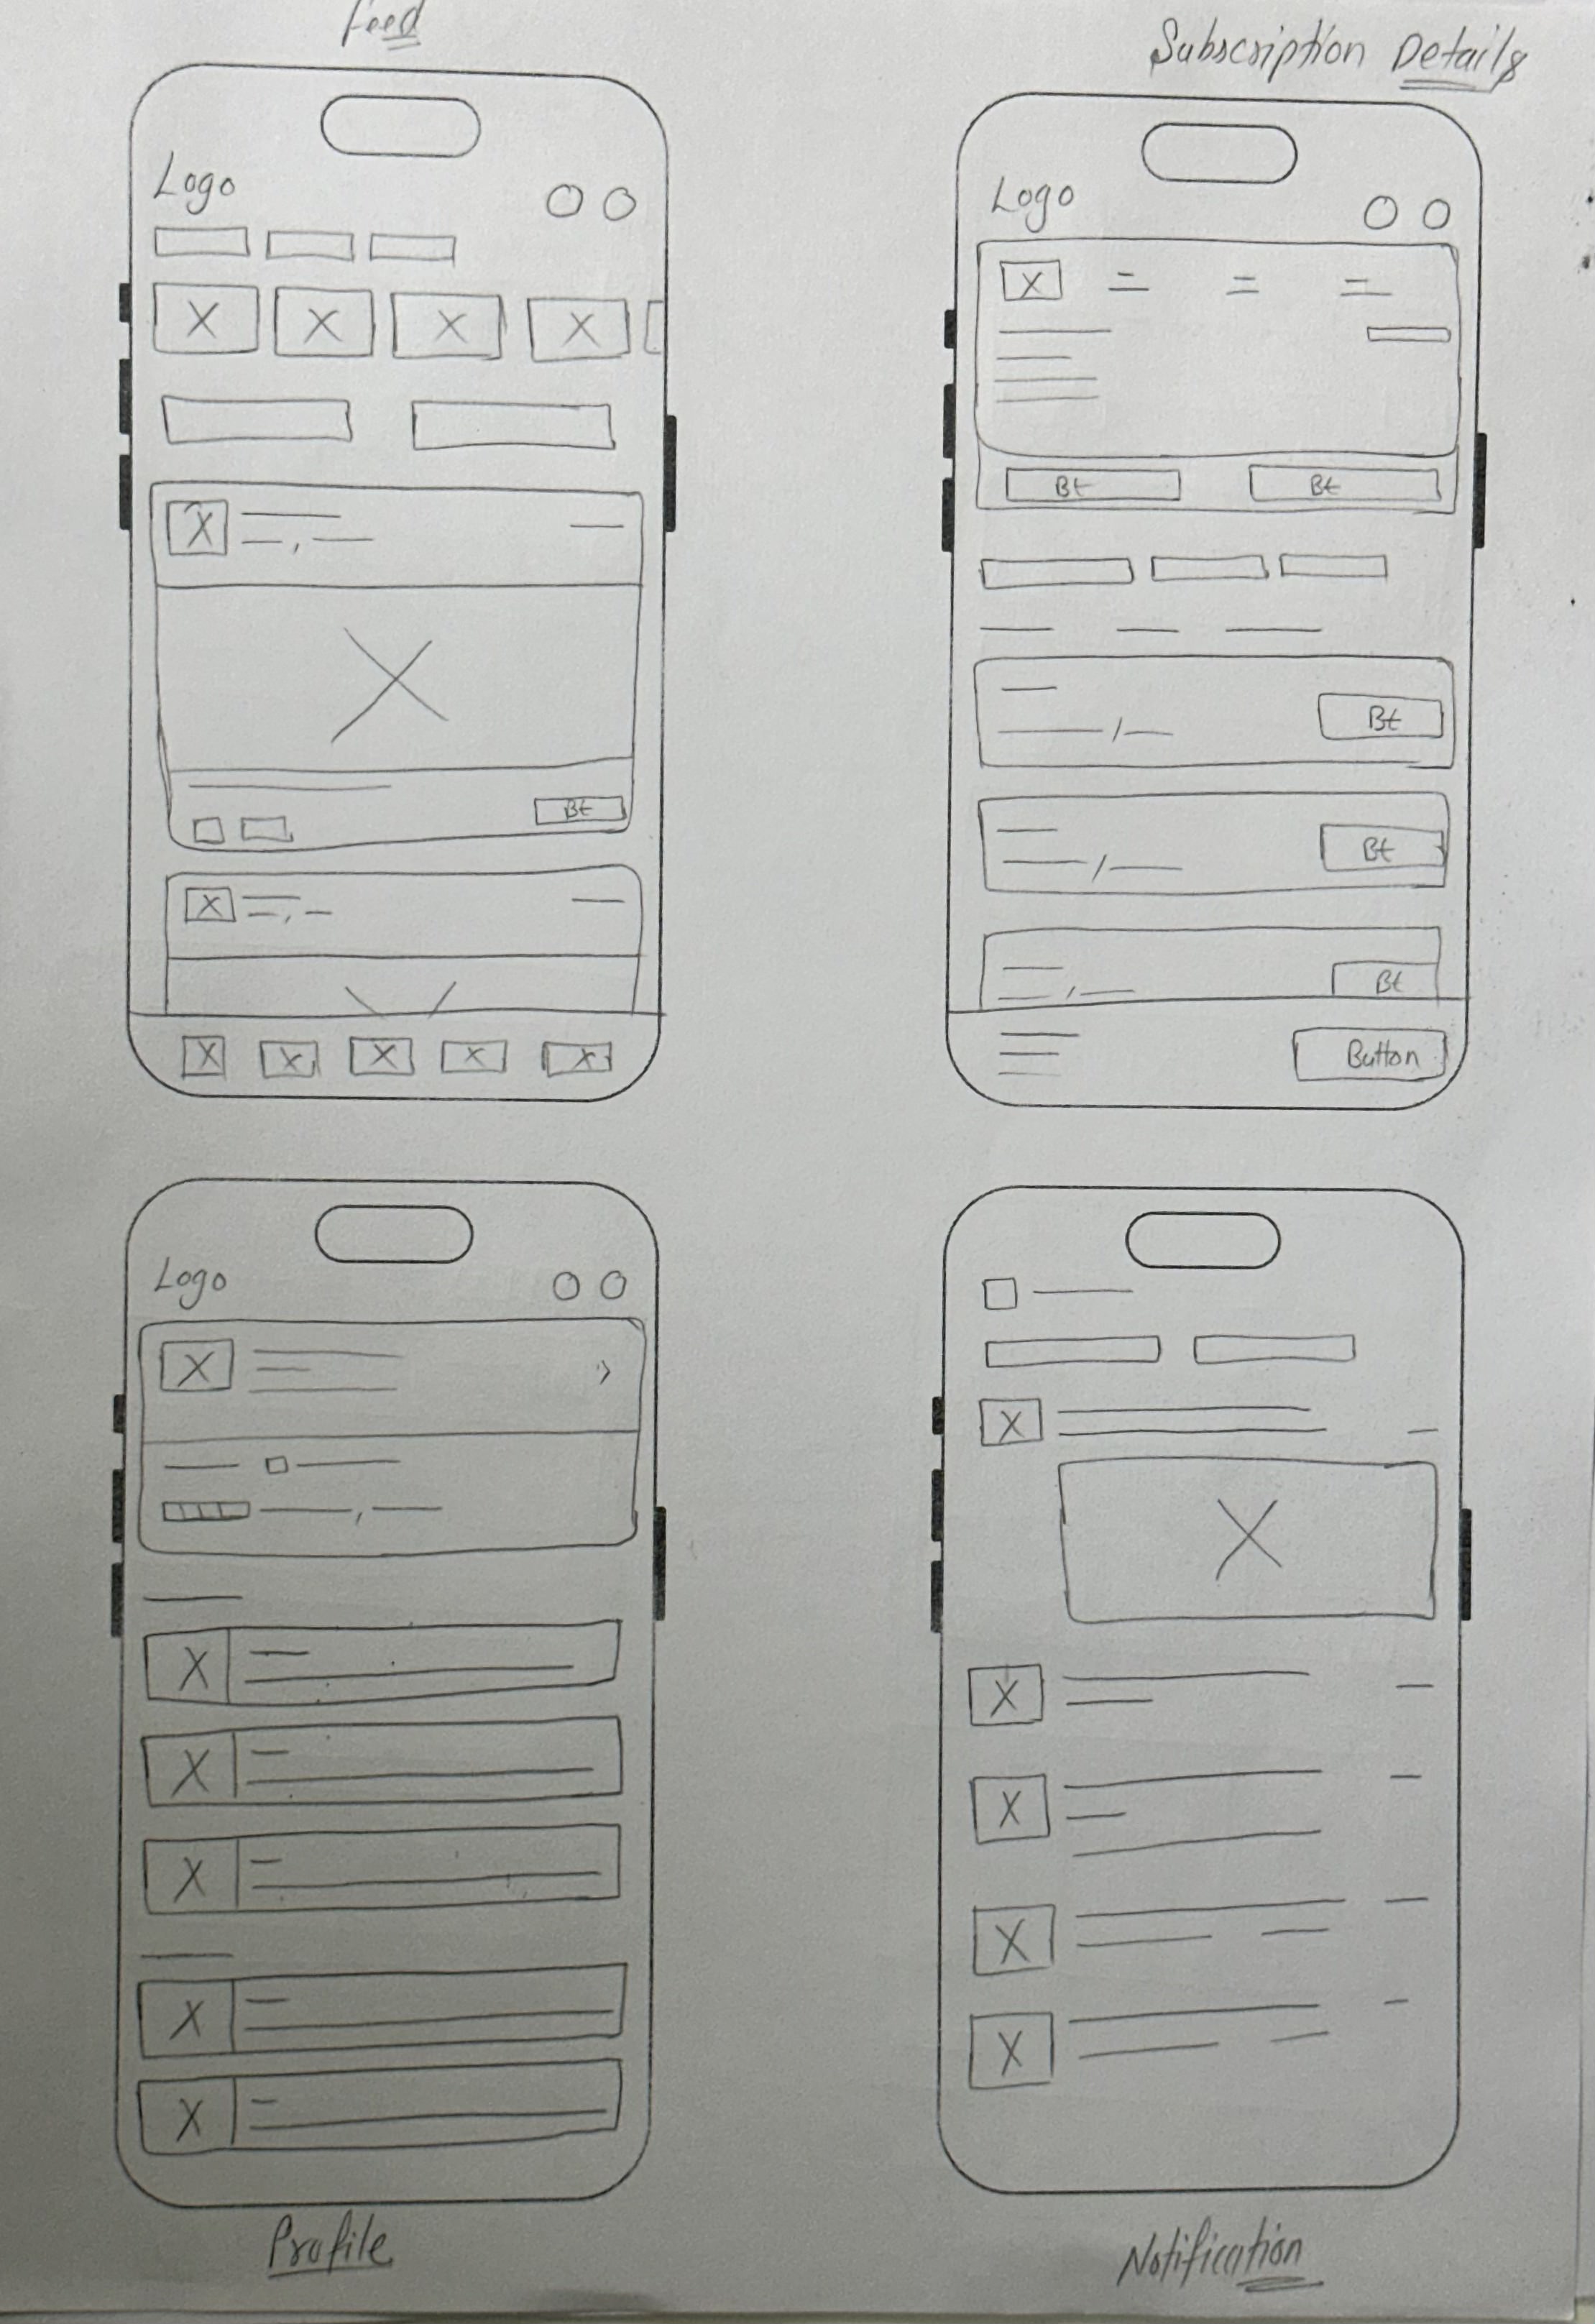 Feed
Subscription Details
Logo
Bt
Logo
Bt Bt
Bt
Bt
Bt
Button
Logo
Profile
Notification